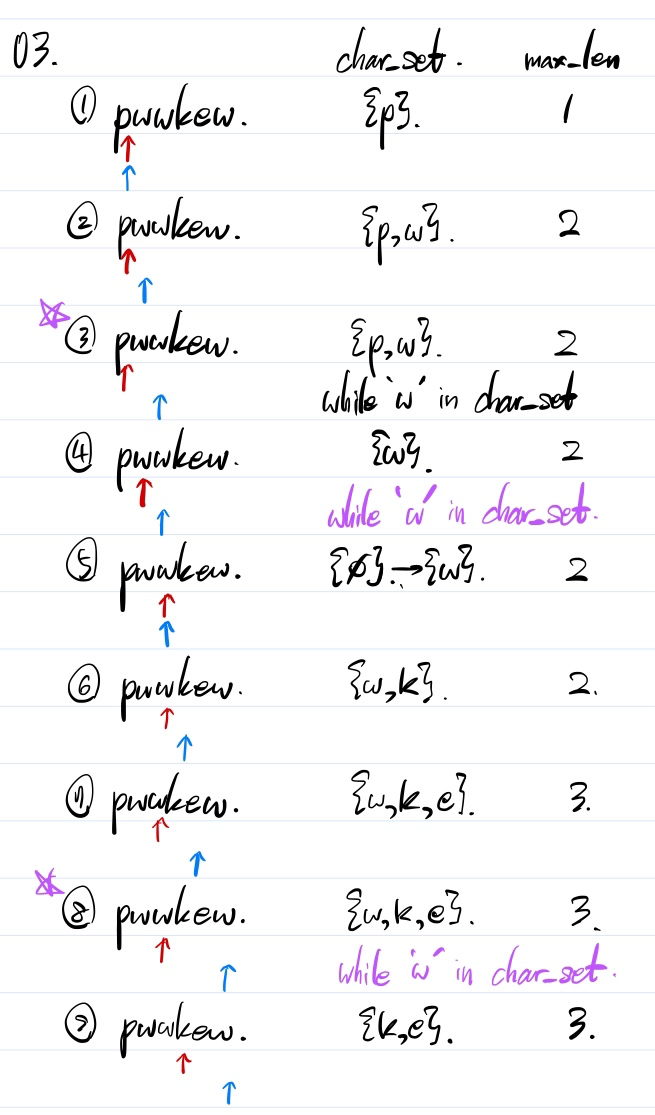 03. char_set. max_len
① pwwkew. {p}. 1
② pwwkew. {p,w}. 2
③ pwwkew. {p,w}. 2
while 'w' in char_set
④ pwwkew. {w}. 2
while 'w' in char_set.
⑤ pwwkew. {∅}.→{w}. 2
⑥ pwwkew. {w,k}. 2.
⑦ pwwkew. {w,k,e}. 3.
⑧ pwwkew. {w,k,e}. 3.
while 'w' in char_set.
⑨ pwwkew. {k,e}. 3.